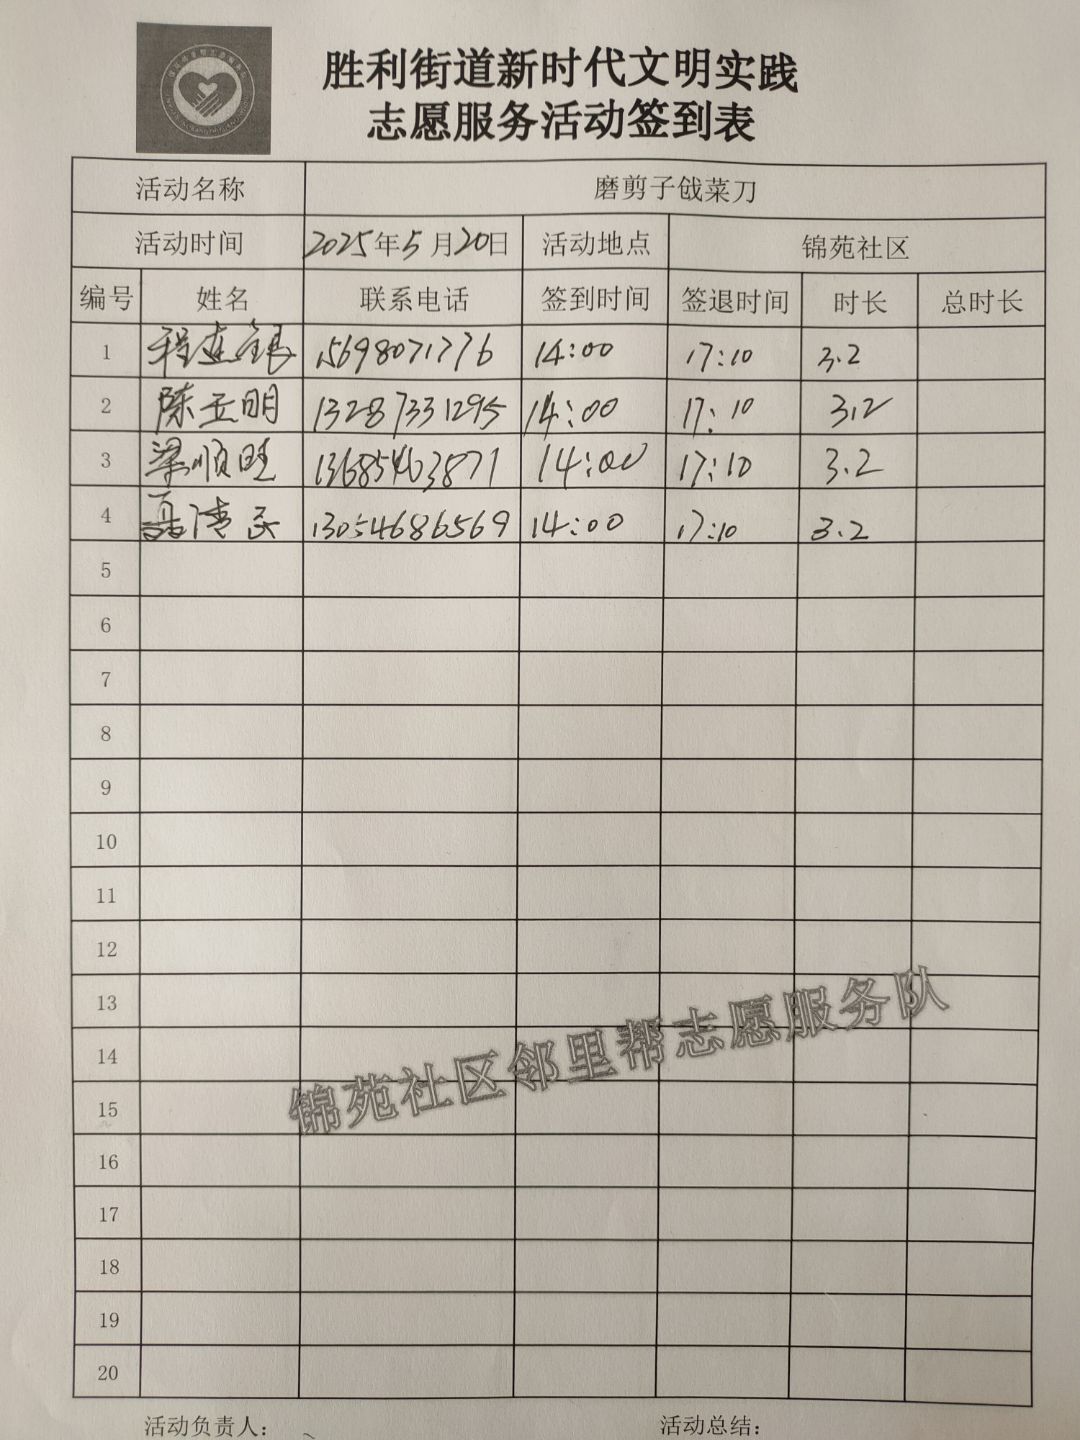 胜利街道新时代文明实践
志愿服务活动签到表
活动名称 磨剪子戗菜刀
活动时间 2025年5月20日 活动地点 锦苑社区
编号 姓名 联系电话 签到时间 签退时间 时长 总时长
1 程连银 15698071776 14:00 17:10 3.2
2 陈玉明 13287331295 14:00 17:10 3.2
3 梁顺旺 13685463871 14:00 17:10 3.2
4 聂清民 13054686569 14:00 17:10 3.2
5
6
7
8
9
10
11
12
13
14
15
16
17
18
19
20
锦苑社区邻里帮志愿服务队
活动负责人： 活动总结：